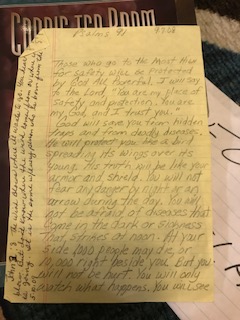 CORRIE TEN BOOM
Psalms 91
Those who go to the Most High
for safety will be protected
by God the Powerful. I will say
to the Lord, You are my place of
safety and protection. You are
my God, and I trust you.
God will save you from hidden
traps and from deadly diseases.
He will protect you like a bird
spreading its wings over its
young. His truth will be like your
armor and shield. You will not
fear any danger by night or an
arrow during the day. You will
not be afraid of diseases that
come in the dark or sickness
that strikes at noon. At your
side 1,000 people may die, or
10,000 right beside you, but you
will not be hurt. You will only
watch what happens. You will see
John 3:8 The wind blows where it wants to go. You hear